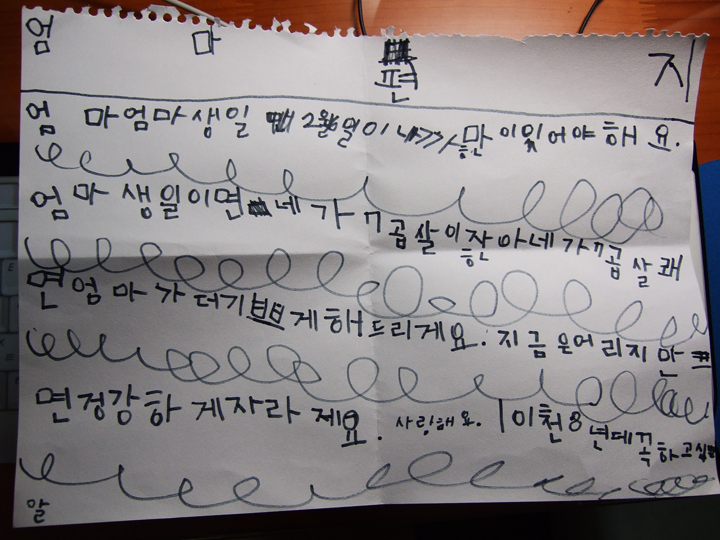 엄 마 편 지
엄 마엄마생일 이있어야해요.
엄마생일이면 네가7곱살이잔아네가7곱살쾌
면엄마가더기쁘게해드리게요. 지금은어리지만
면정감하게자라제요. 사랑해요. 이천8년데꼭하고싶
말